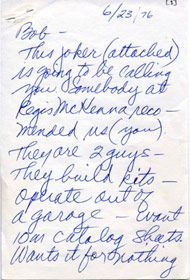 [3]
6/23/76
Bob –
This joker (attached)
is going to be calling
you. Somebody at
Regis McKenna reco-
mended us (you).
They are 2 guys –
They build kits –
operate out of
a garage – want
10M catalog sheets.
Wants it for nothing